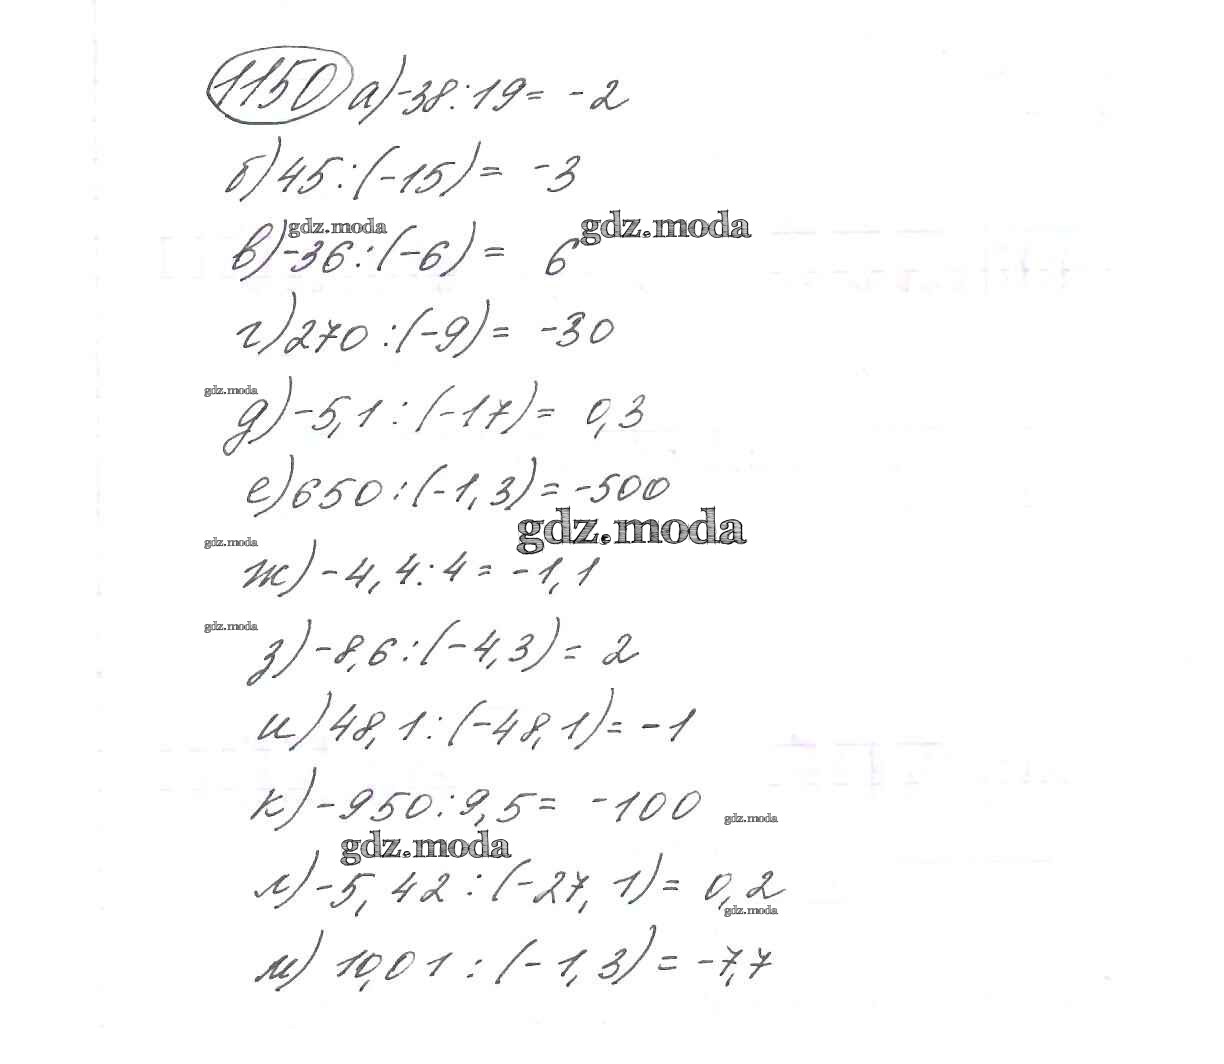 1150 а) -38:19= -2
б) 45:(-15)= -3
gdz.moda gdz.moda
в) -36:(-6)= 6
г) 270:(-9)= -30
gdz.moda
д) -5,1:(-17)= 0,3
е) 650:(-1,3)= -500
gdz.moda
gdz.moda
ж) -4,4:4= -1,1
gdz.moda
з) -8,6:(-4,3)= 2
и) 48,1:(-48,1)= -1
к) -950:9,5= -100
gdz.moda
gdz.moda
л) -5,42:(-27,1)= 0,2
gdz.moda
м) 10,01:(-1,3)= -7,7